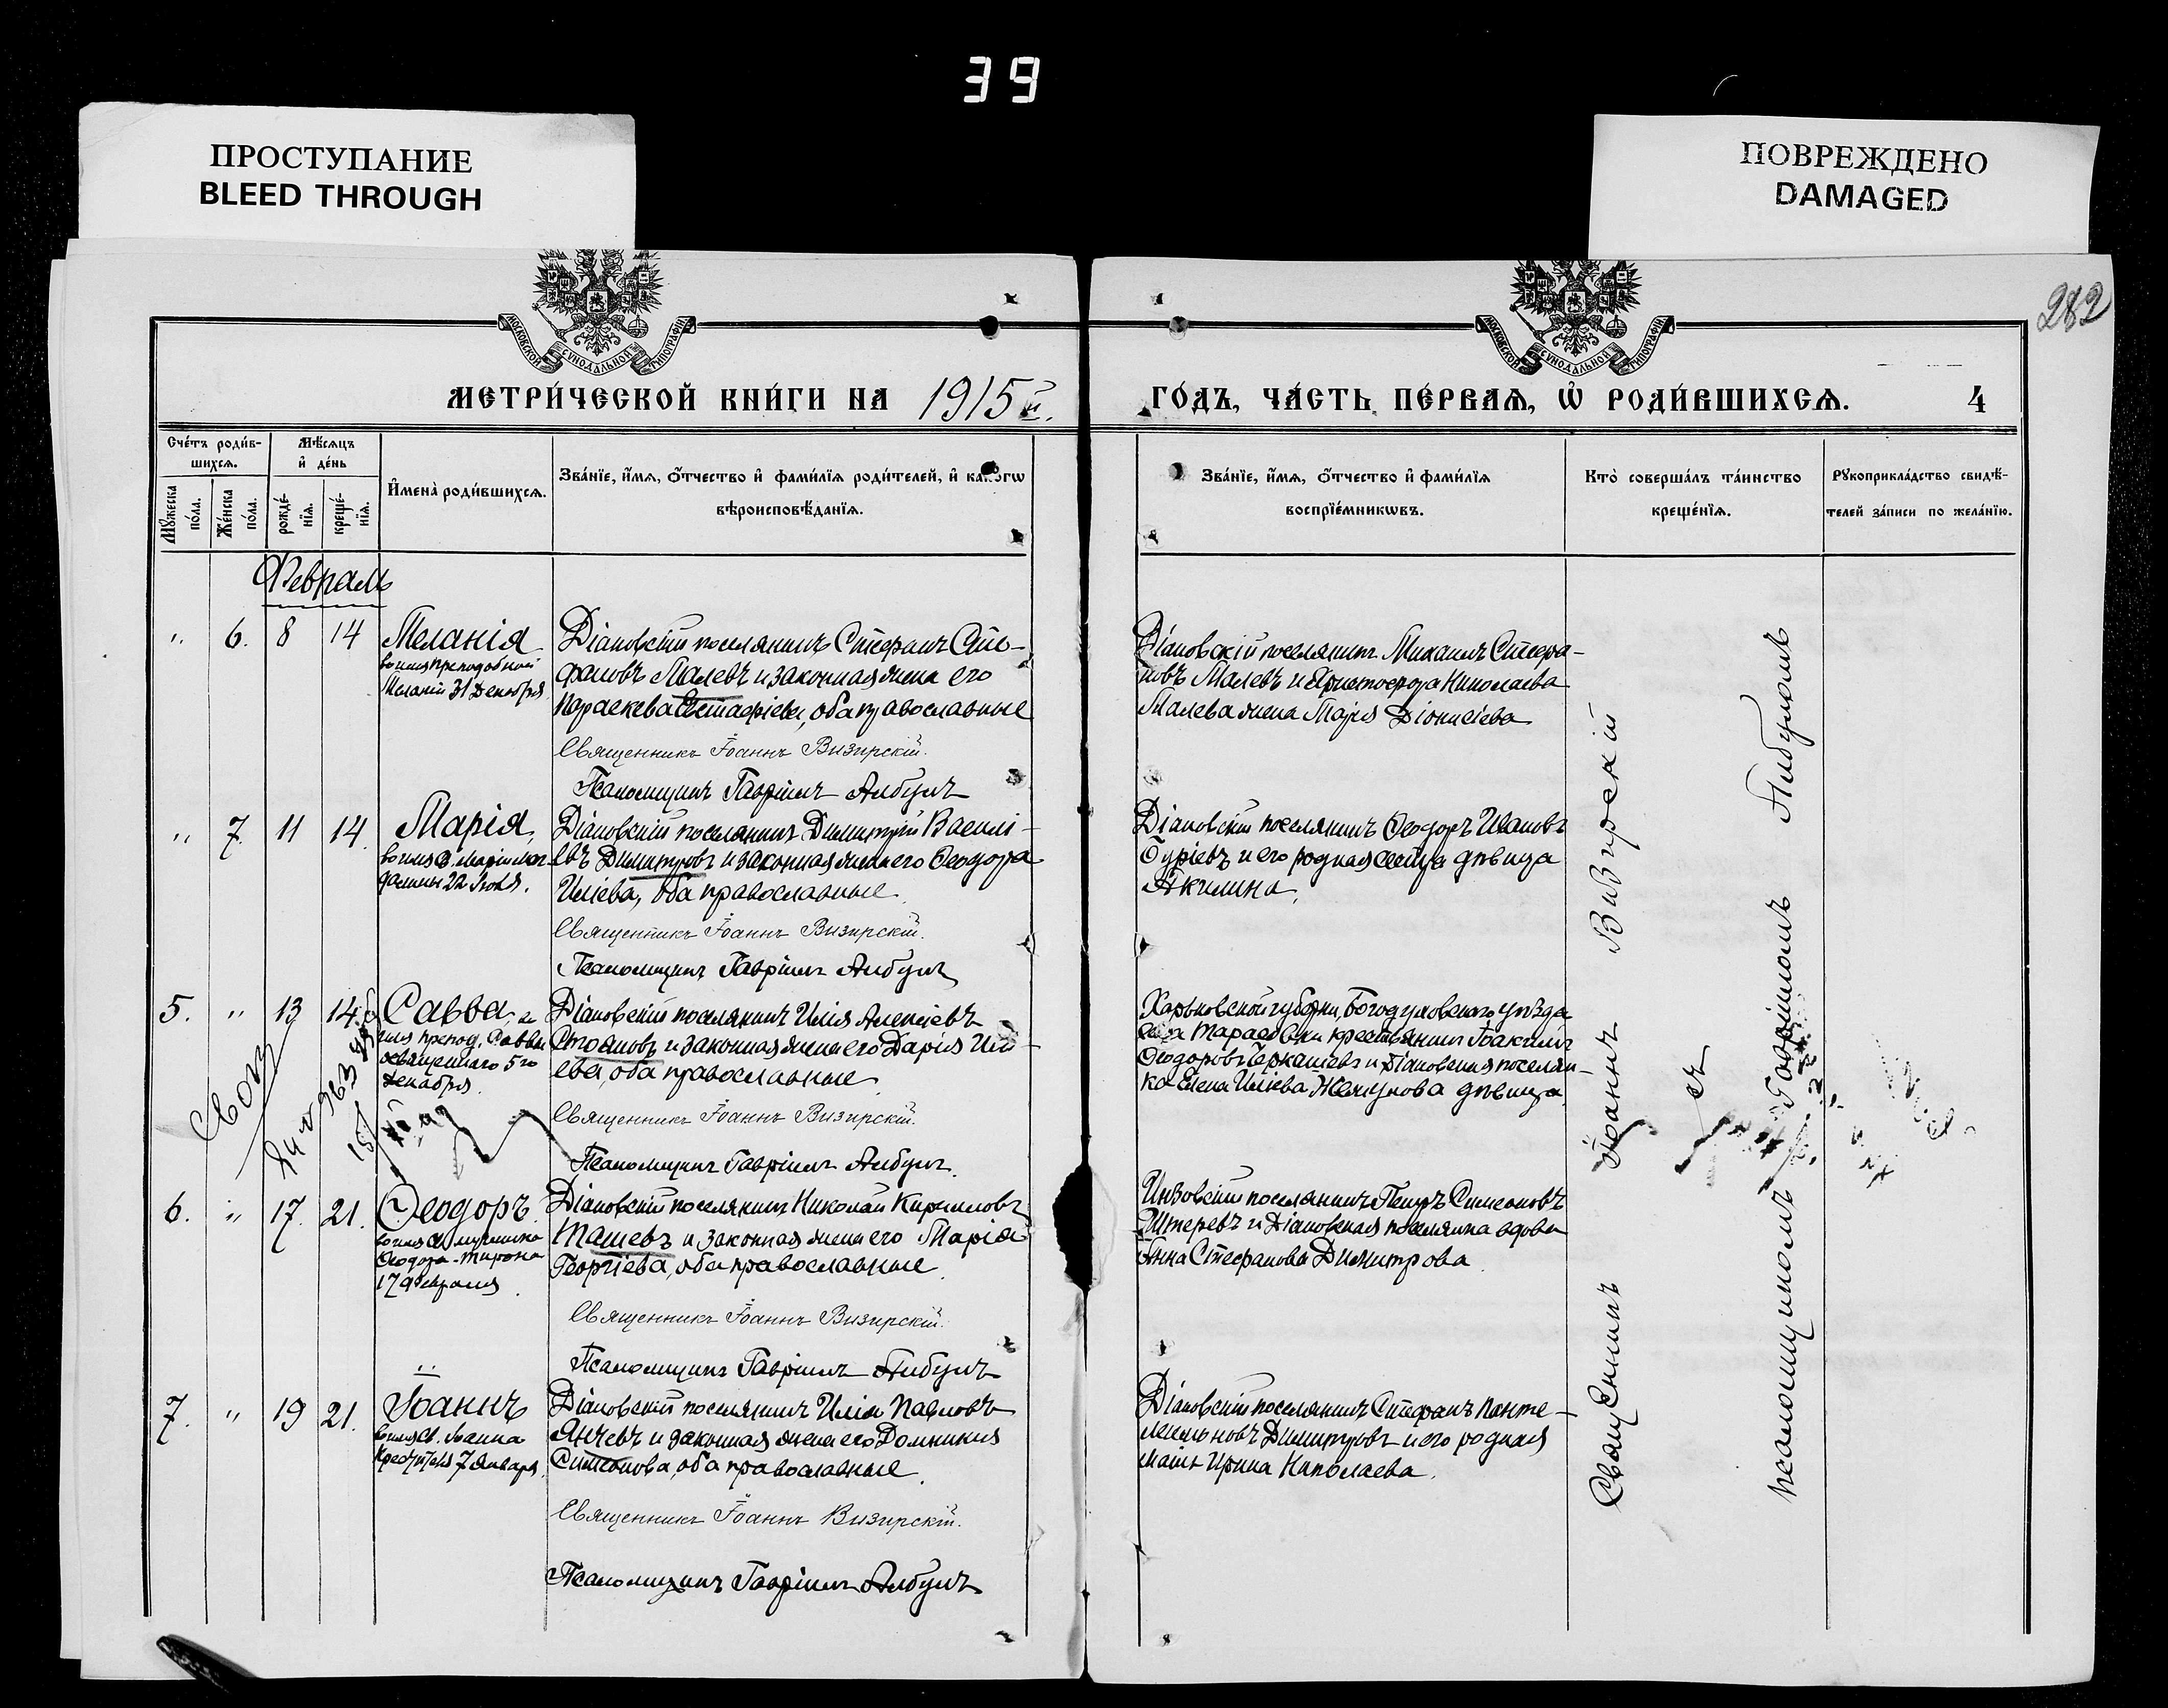 39
ПРОСТУПАНИЕ
BLEED THROUGH
ПОВРЕЖДЕНО
DAMAGED
282
МОСКОВСКОЙ СѴНОДАЛЬНОЙ ТИПОГРАФІИ
МОСКОВСКОЙ СѴНОДАЛЬНОЙ ТИПОГРАФІИ
МЕТРИ́ЧЕСКОЙ КНИ́ГИ НА 1915 й.
ГО́ДЪ, ЧА́СТЬ ПЕ́РВАѦ, Ѡ҆ РОДИ́ВШИХСѦ. 4
Сче́тъ роди́в-
шихсѧ.
Мѣ́сѧцъ
и҆ де́нь
Мꙋ́жеска
по́ла.
Же́нска
по́ла.
рожде́-
нїѧ.
креще́-
нїѧ.
И҆мена̀ роди́вшихсѧ.
Зва́нїе, и҆́мѧ, ѻ҆́тчество и҆ фами́лїѧ роди́телей, и҆ како́гѡ
вѣроисповѣ́данїѧ.
Зва́нїе, и҆́мѧ, ѻ҆́тчество и҆ фами́лїѧ
воспрїе́мникѡвъ.
Кто̀ соверша́лъ та́инство
креще́нїѧ.
Рꙋкоприкла́дство свидѣ́-
телей за́писи по жела́нїю.
Февраль
" 6. 8 14
Меланія
во имя преподобной
Меланіи 31 Декабря
Діановскій поселянинъ Стефанъ Сте-
фановъ Малевъ и законная жена его
Параскева Евстафіева, оба православные
Священникъ Іоаннъ Визирскій.
Псаломщикъ Гавріилъ Анбулъ
Діановскій поселянинъ Михаилъ Стефа-
новъ Малевъ и Христофора Николаева
Малева жена Марія Діонисіева
" 7. 11 14.
Марія,
во имя св. Маріи Маг-
далины 22 Іюля.
Діановскій поселянинъ Димитрій Василі-
евъ Димитровъ и законная жена его Ѳеодора
Иліева, оба православные.
Священникъ Іоаннъ Визирскій.
Псаломщикъ Гавріилъ Анбулъ
Діановскій поселянинъ Ѳеодоръ Ивановъ
Гуріевъ и его родная сестра дѣвица
Акилина.
5. " 13 14
Савва, во
имя препод. Саввы
освященнаго 5го
декабря.
Діановскій поселянинъ Илія Алексіевъ
Стояновъ и законная жена его Дарія Илі-
ева, оба православные
Священникъ Іоаннъ Визирскій.
Псаломщикъ Гавріилъ Анбулъ.
Харьковской губерніи, Богодуховскаго уѣзда
села Тарасовки крестьянинъ Іоакимъ
Ѳеодоровъ Черкашевъ и Діановская поселян-
ка Елена Иліева Желяскова дѣвица.
6. " 17. 21.
Ѳеодоръ.
во имя св. мученика
Ѳеодора Тирона
17 Февраля.
Діановскій поселянинъ Николай Кирилловъ
Ташевъ и законная жена его Марія
Георгіева, оба православные.
Священникъ Іоаннъ Визирскій.
Псаломщикъ Гавріилъ Анбулъ
Инзовскій поселянинъ Петръ Симеоновъ
Штеревъ и Діановская поселянка вдова
Анна Стефанова Димитрова
7. " 19 21.
Іоаннъ
во имя св. Іоанна
Крестителя 7 Января.
Діановскій поселянинъ Илія Павловъ
Янчевъ и законная жена его Домникия
Симеонова, оба православные.
Священникъ Іоаннъ Визирскій.
Псаломщикъ Гавріилъ Анбулъ
Діановскій поселянинъ Стефанъ Панте-
леимоновъ Димитровъ и его родная
мать Ирина Николаева.
Священникъ Іоаннъ Визирскій
съ
псаломщикомъ Гавріиломъ Анбуломъ